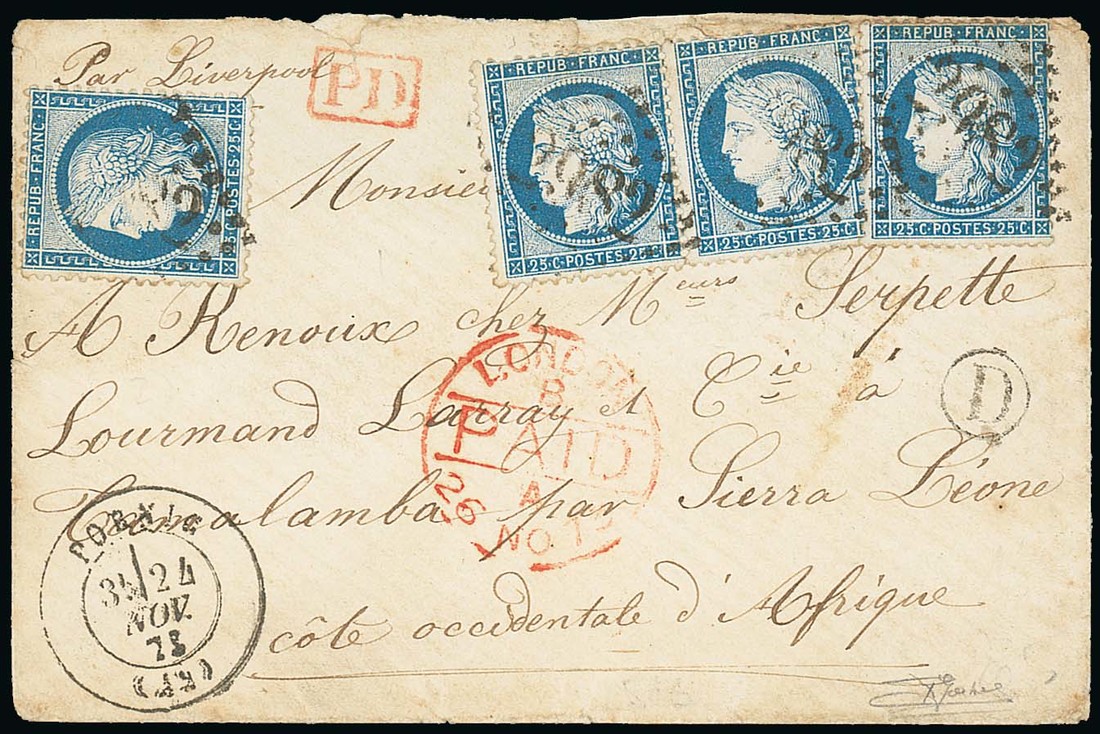 Par Liverpool
PD
REPUB FRANC
25 C POSTES 25 C
REPUB FRANC
25 C POSTES 25 C
REPUB FRANC
25 C POSTES 25 C
REPUB FRANC
25 C POSTES 25 C
Monsieur
A Renoux chez Meurs Serpette
Lourmand Larray et Cie à
D
par Sierra Léone
côte occidentale d'Afrique
LONDON
8
PAID
A
26 NO 7
PORNIC
3E 24
NOV.
73